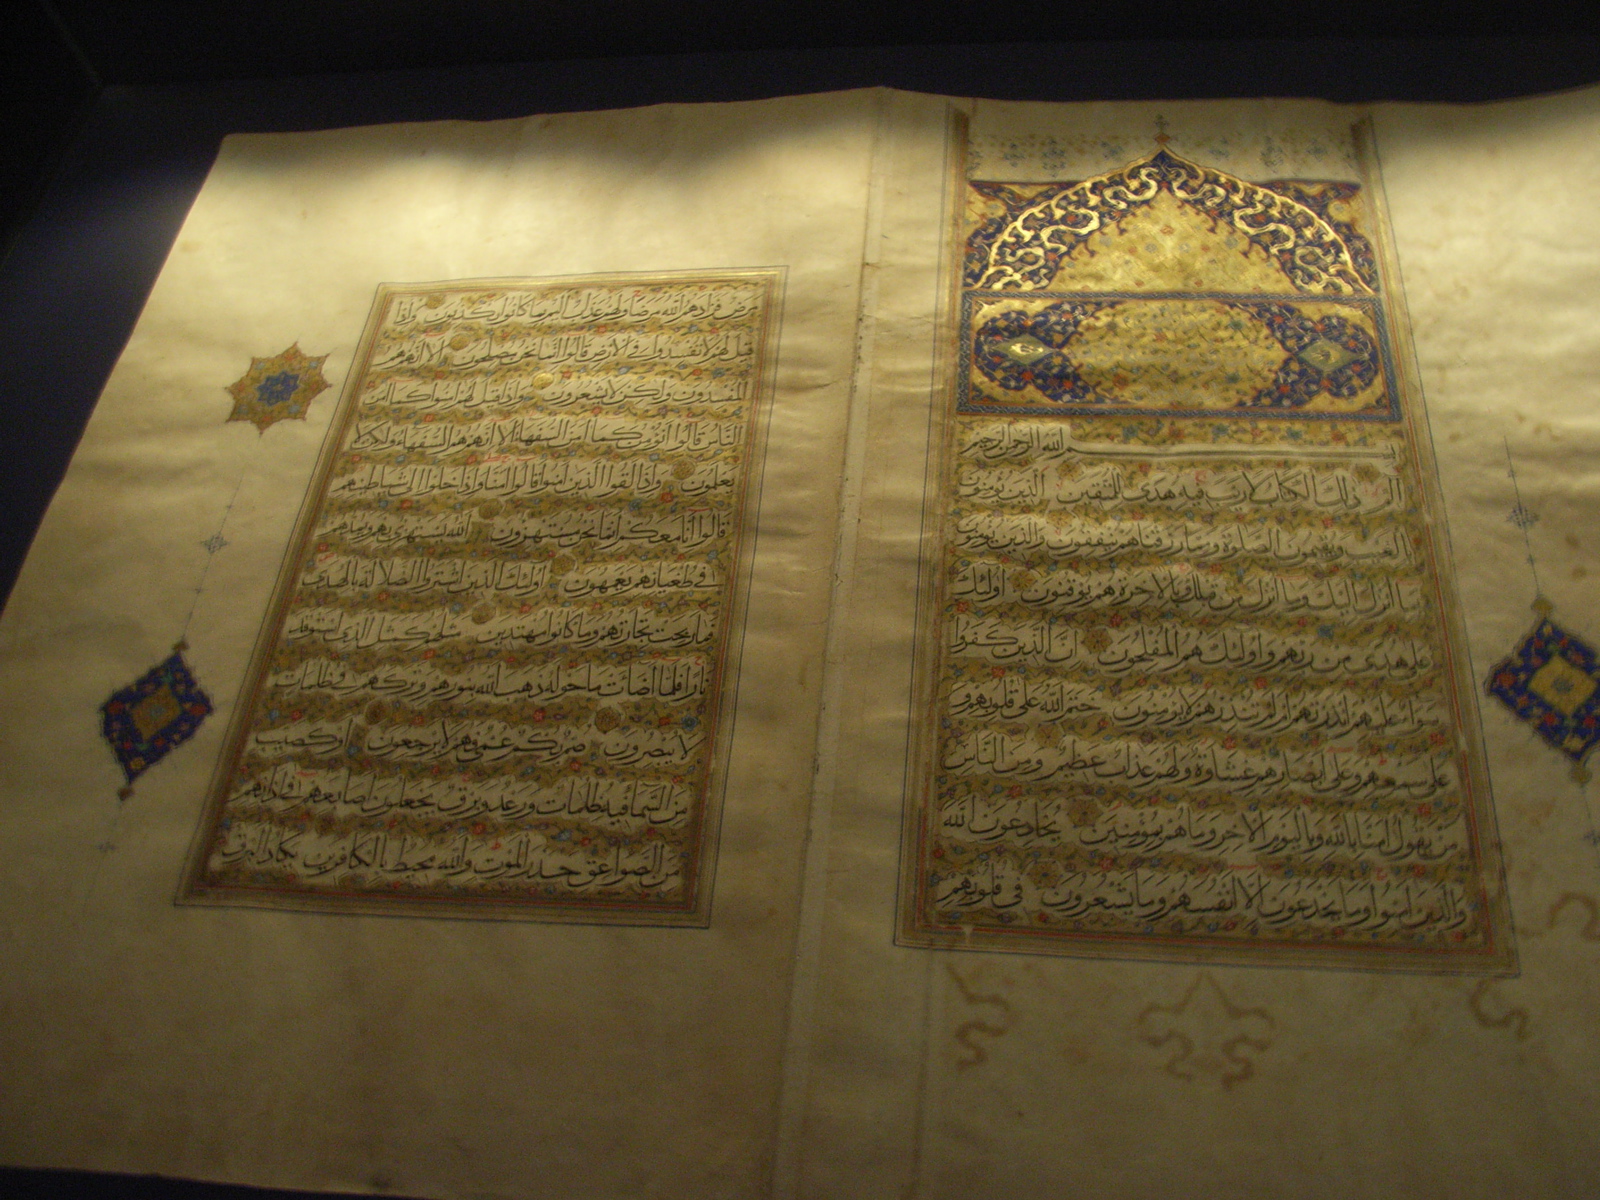 بسم الله الرحمن الرحيم
الم ذلك الكتاب لا ريب فيه هدى للمتقين الذين يؤمنون
بالغيب ويقيمون الصلوة ومما رزقناهم ينفقون والذين يؤمنون
بما انزل اليك وما انزل من قبلك وبالاخرة هم يوقنون اولئك
على هدى من ربهم واولئك هم المفلحون ان الذين كفروا
سواء عليهم ءانذرتهم ام لم تنذرهم لا يؤمنون ختم الله على قلوبهم و
على سمعهم وعلى ابصارهم غشاوة ولهم عذاب عظيم ومن الناس
من يقول امنا بالله وباليوم الاخر وما هم بمؤمنين يخادعون الله
والذين امنوا وما يخدعون الا انفسهم وما يشعرون في قلوبهم
مرض فزادهم الله مرضا ولهم عذاب اليم بما كانوا يكذبون واذا
قيل لهم لا تفسدوا في الارض قالوا انما نحن مصلحون الا انهم هم
المفسدون ولكن لا يشعرون واذا قيل لهم امنوا كما امن
الناس قالوا انؤمن كما امن السفهاء الا انهم هم السفهاء ولكن لا
يعلمون واذا لقوا الذين امنوا قالوا امنا واذا خلوا الى شياطينهم
قالوا انا معكم انما نحن مستهزؤن الله يستهزئ بهم ويمدهم
في طغيانهم يعمهون اولئك الذين اشتروا الضلالة بالهدى
فما ربحت تجارتهم وما كانوا مهتدين مثلهم كمثل الذي استوقد
نارا فلما اضائت ما حوله ذهب الله بنورهم وتركهم في ظلمات
لا يبصرون صم بكم عمي فهم لا يرجعون او كصيب
من السماء فيه ظلمات ورعد وبرق يجعلون اصابعهم في اذانهم
من الصواعق حذر الموت والله محيط بالكافرين يكاد البرق